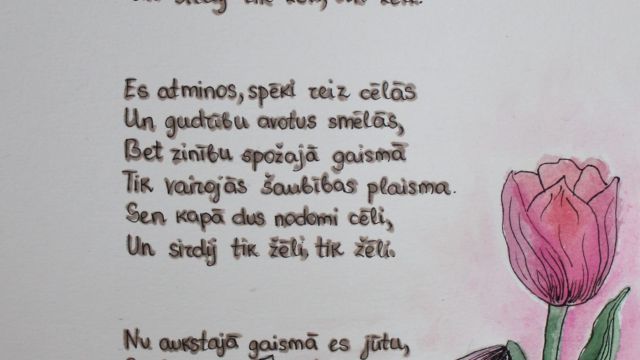 Es atminos, spēki reiz cēlās
Un gudrību avotus smēlās,
Bet zinību spožajā gaismā
Tik vairojās šaubības plaisma.
Sen kapā dus nodomi cēli,
Un sirdij tik žēli, tik žēli.
Nu aukstajā gaismā es jūtu,